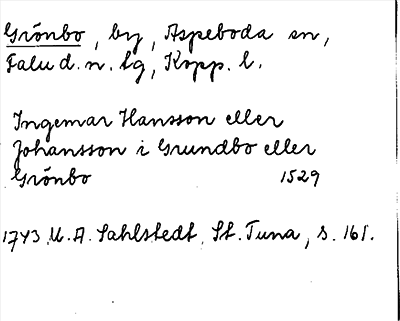 Grönbo, by, Aspeboda sn,
Falu d. n. lg, Kopp. l.
Ingemar Hansson eller
Johansson i Grundbo eller
Grönbo 1529
1743 U. A. Sahlstedt, St. Tuna, s. 161.